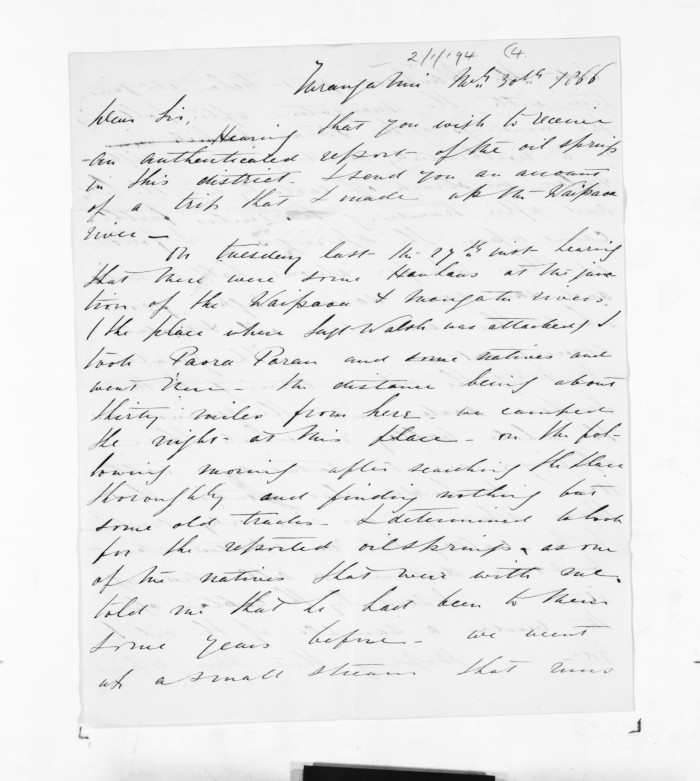 2/1/94 (4.
Turanganui Nov. 30th 1866
Dear Sir,
Hearing that you wish to receive
an authenticated report of the oil springs
in this district I send you an account
of a trip that I made up the Waipaoa
river —
On tuesday last the 27th inst hearing
that there were some Hauhaus at the junc
tion of the Waipaoa & Mangatu rivers.
(the place where Sergt Walsh was attacked) I
took Paora Parau and some natives and
went there — the distance being about
thirty miles from here — we camped
the night at this place — on the fol-
lowing morning after searching the place
thoroughly and finding nothing but
some old tracks — I determined to look
for the reported oil springs as one
of the natives that were with me
told me that he had been to them
some years before — we went
up a small stream that runs